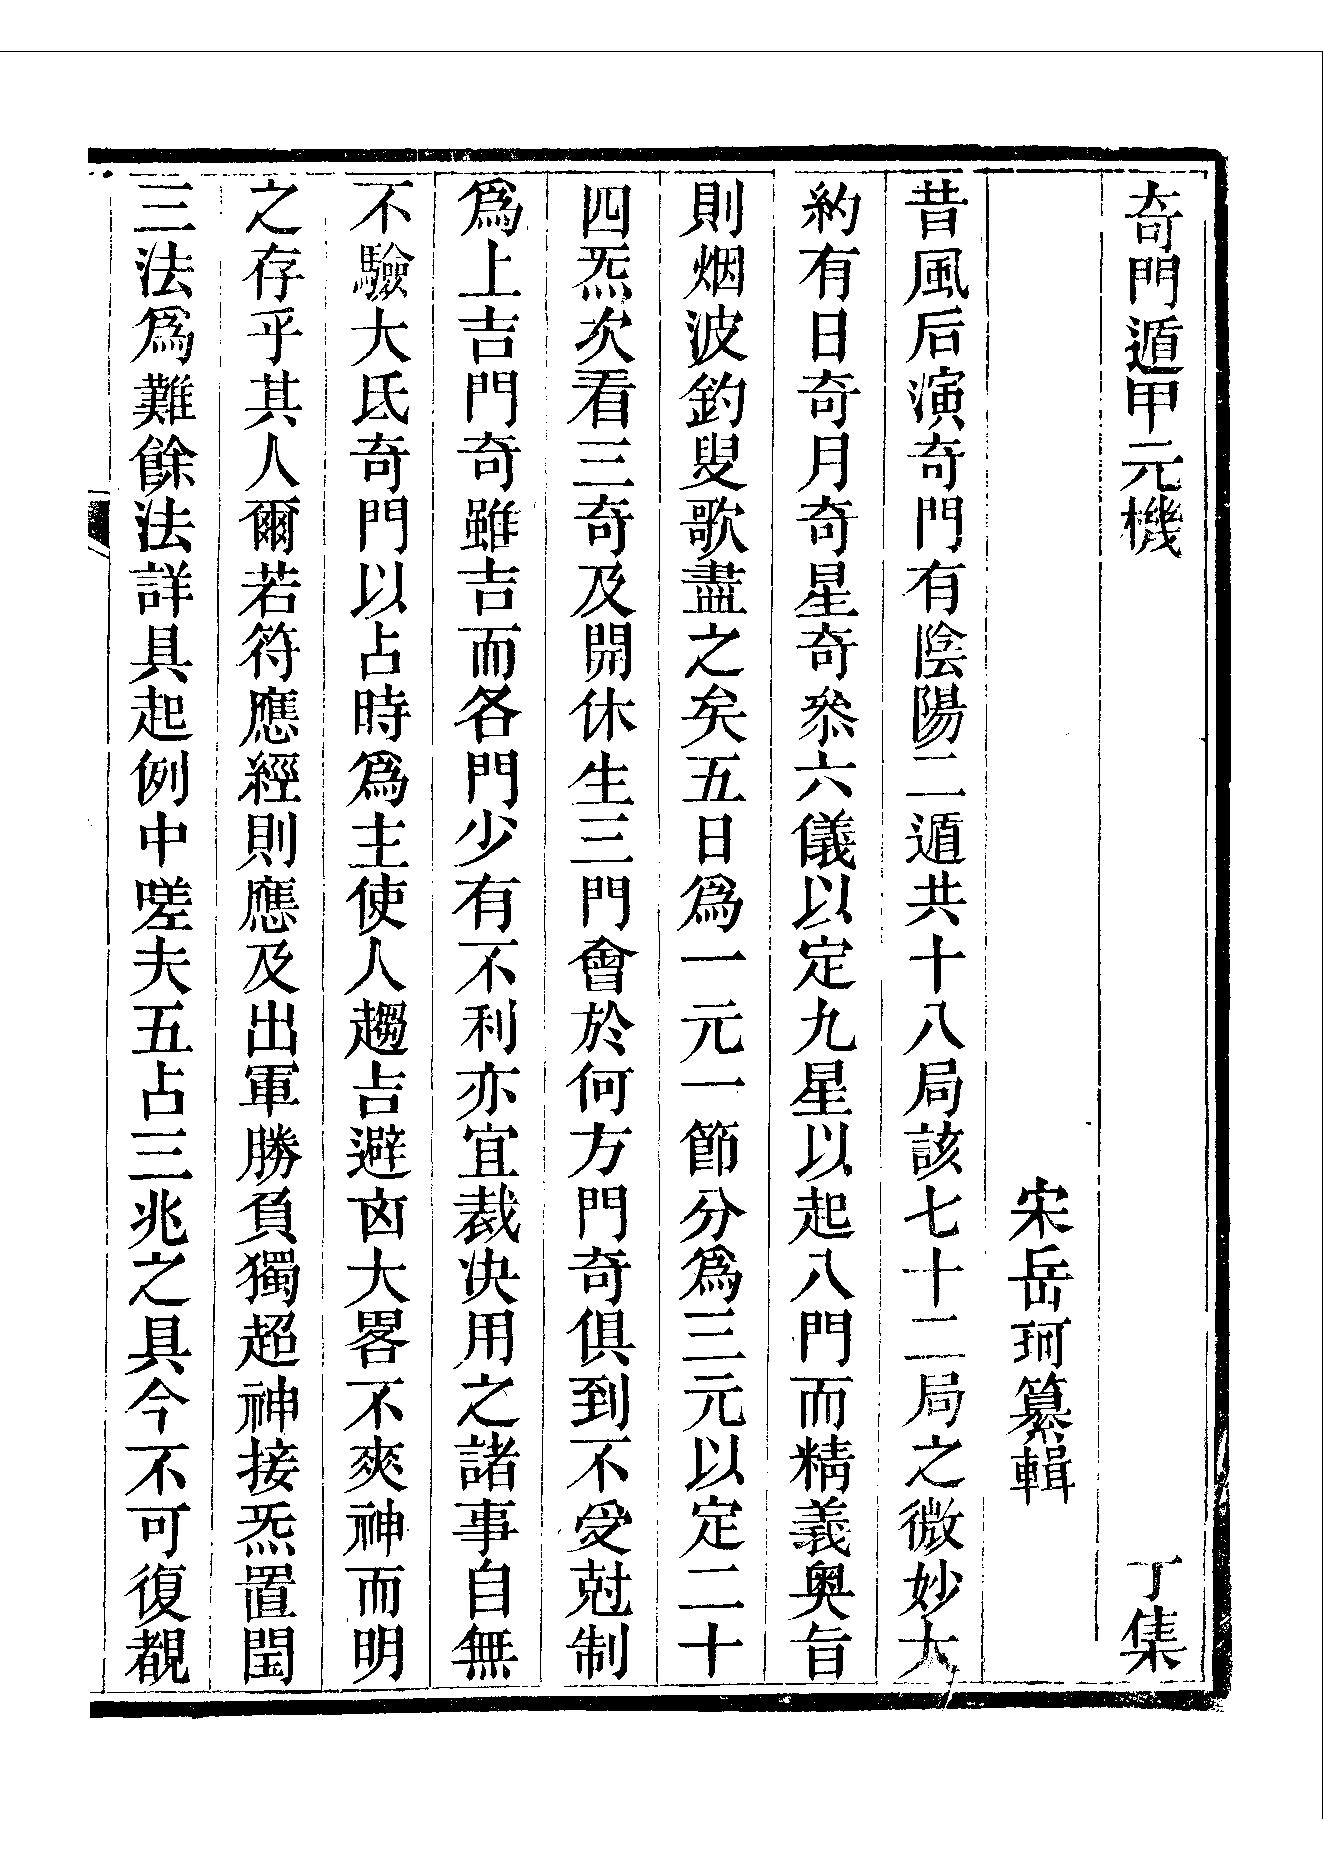 奇門遁甲元機　丁集
宋岳珂纂輯
昔風后演奇門有陰陽二遁共十八局該七十二局之微妙大
約有日奇月奇星奇叅六儀以定九星以起八門而精義奧旨
則烟波釣叟歌盡之矣五日爲一元一節分爲三元以定二十
四炁次看三奇及開休生三門會於何方門奇俱到不受尅制
爲上吉門奇雖吉而各門少有不利亦宜裁决用之諸事自無
不驗大氐奇門以占時爲主使人趨吉避凶大畧不爽神而明
之存乎其人爾若符應經則應及出軍勝負獨超神接炁置閏
三法爲難餘法詳具起例中嗟夫五占三兆之具今不可復覩